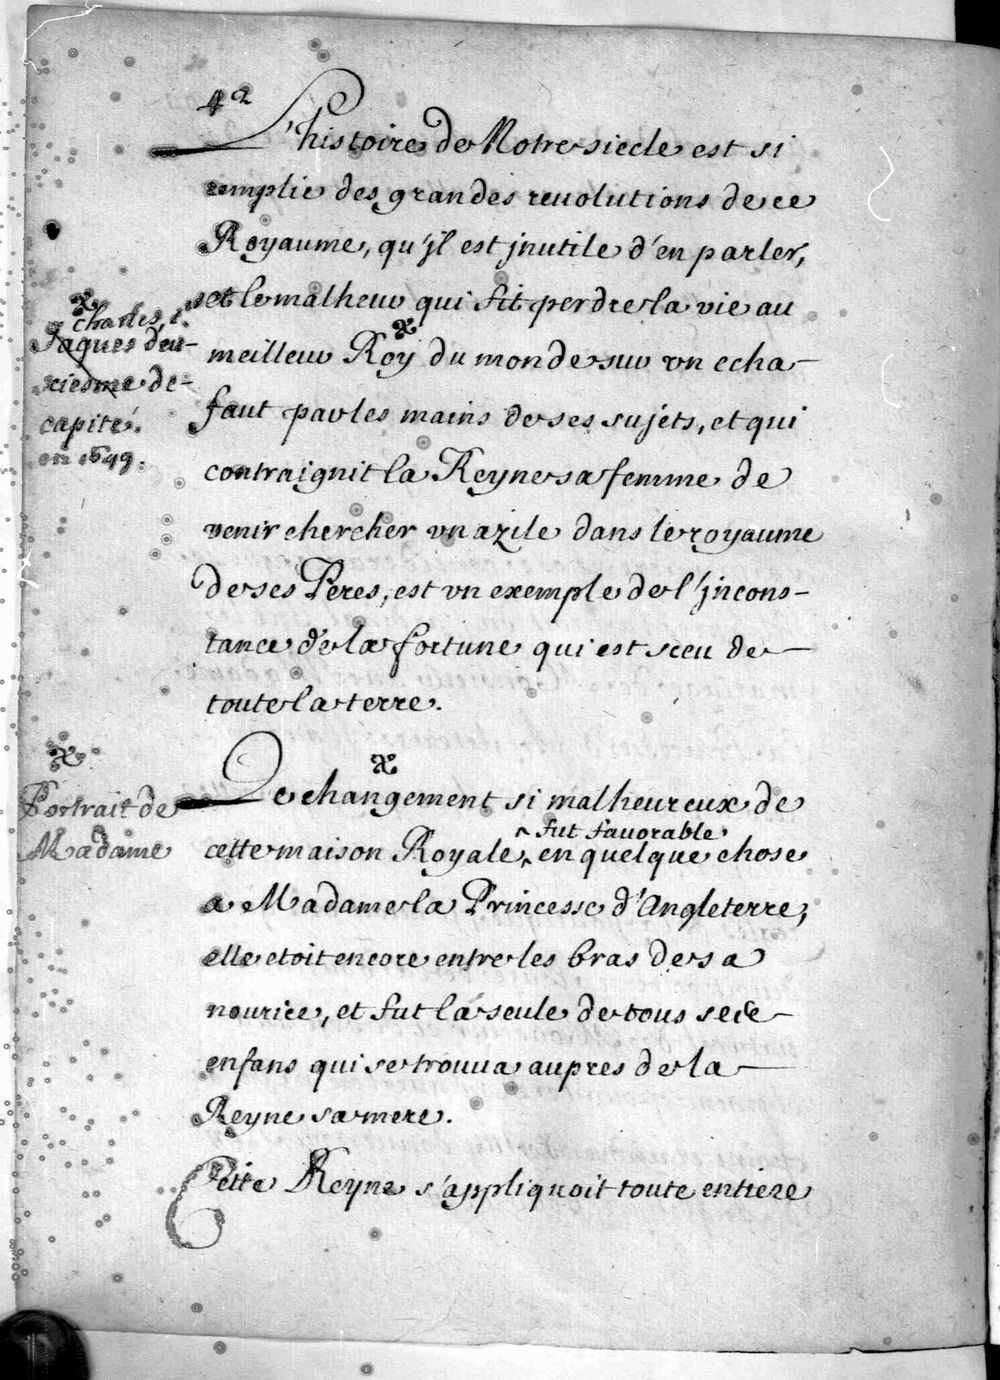 42
L'histoire de Notre siecle est si
remplie des grandes reuolutions de ce
Royaume, qu'jl est jnutile d'en parler,
et le malheur qui fit perdre la vie au
meilleur Roy du monde sur vn echa-
faut par les mains de ses sujets, et qui
contraignit la Reyne sa femme de
venir chercher vn azile dans le royaume
de ses Peres, est vn exemple de l'jncons-
tance de la fortune qui est sceu de
toute la terre.
Charles 1.
Jaques deu-
xiesme de-
capité.
en 1649.
Ce changement si malheureux de
fut favorable
cette maison Royale, en quelque chose
a Madame la Princesse d'Angleterre;
elle etoit encore entre les bras de sa
nourice, et fut la seule de tous
enfans qui se trouua aupres de la
Reyne sa mere.
Portrait de
Madame
Cette Reyne s'appliquoit toute entiere